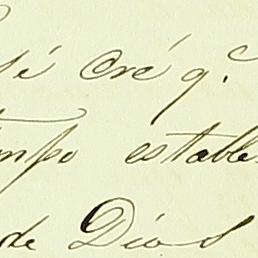 sé cré q.e
empo estable
de Dios